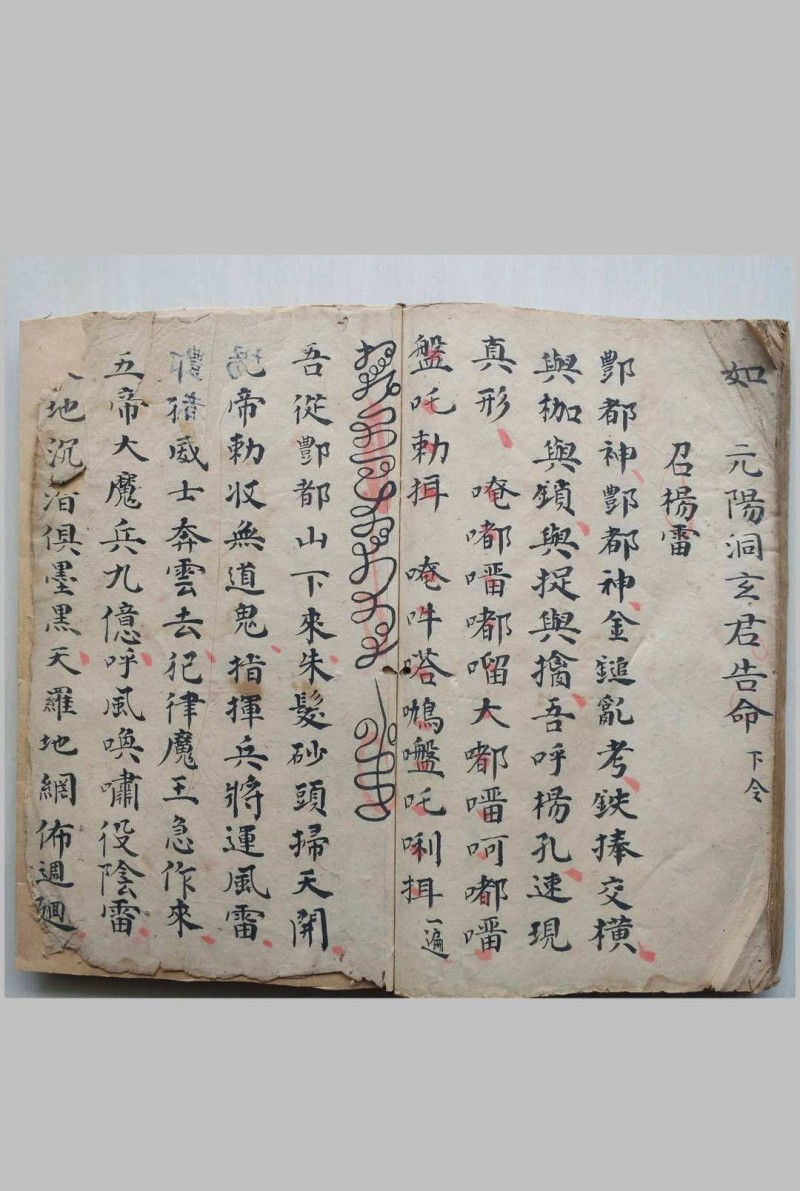 如 元陽洞玄君告命 下令
召楊雷
酆都神酆都神金鎚亂考鉄捧交橫
與枷與鎖與捉與擒吾呼楊孔速現
真形 唵嘟㗭嘟嚠大嘟㗭呵嘟㗭
盤吒勅揖 唵吽嗒吒唎揖 一遍
吾從酆都山下來朱髮砂頭掃天開
帝勅收無道鬼指揮兵將運風雷
酆猪威士奔雲去犯律魔王急作來
五帝大魔兵九億呼風喚嘯役陰雷
地沉俱墨黑天羅地網佈週迴